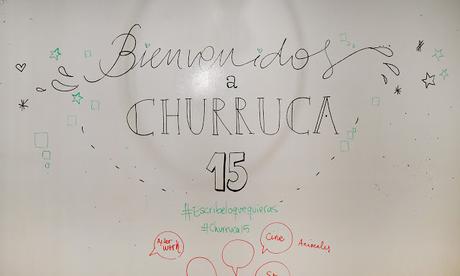 Bienvenidos
a
CHURRUCA
15
#Escribeloquequieras
#Churruca15
After work
Cine
Animales